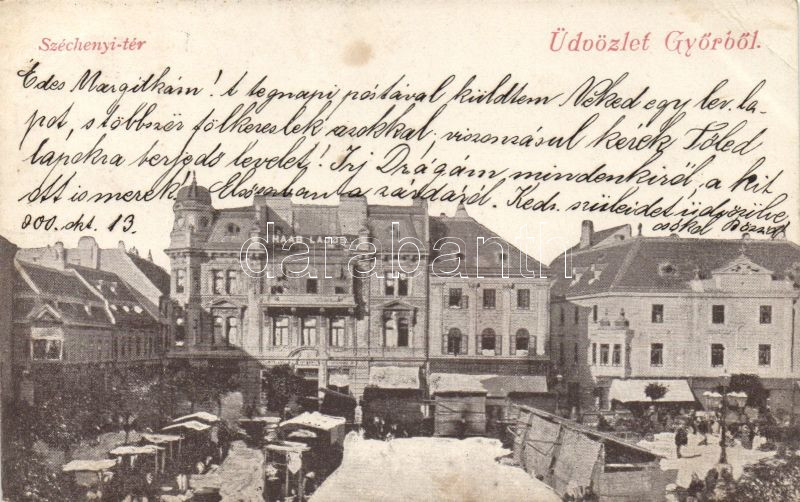 Széchenyi-tér
Üdvözlet Győrből.
Édes Margitkám! A tegnapi póstával küldtem Neked egy lev. la-
pot, s többször fölkereslek azokkal; viszonzásul kérek Tőled
lapokra terjedő levelet! Irj Drágám mindenkiről, a kit
ott ismerek. Elsősorban a zárdáról. Kedv. szüleidet üdvözölve
900. okt. 13.
csókol
HAAS LAJOS
darabanth